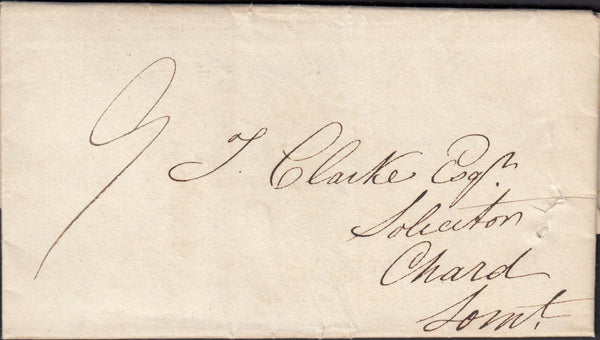 9
T. Clarke Esqr.
Solicitor
Chard
Somt.